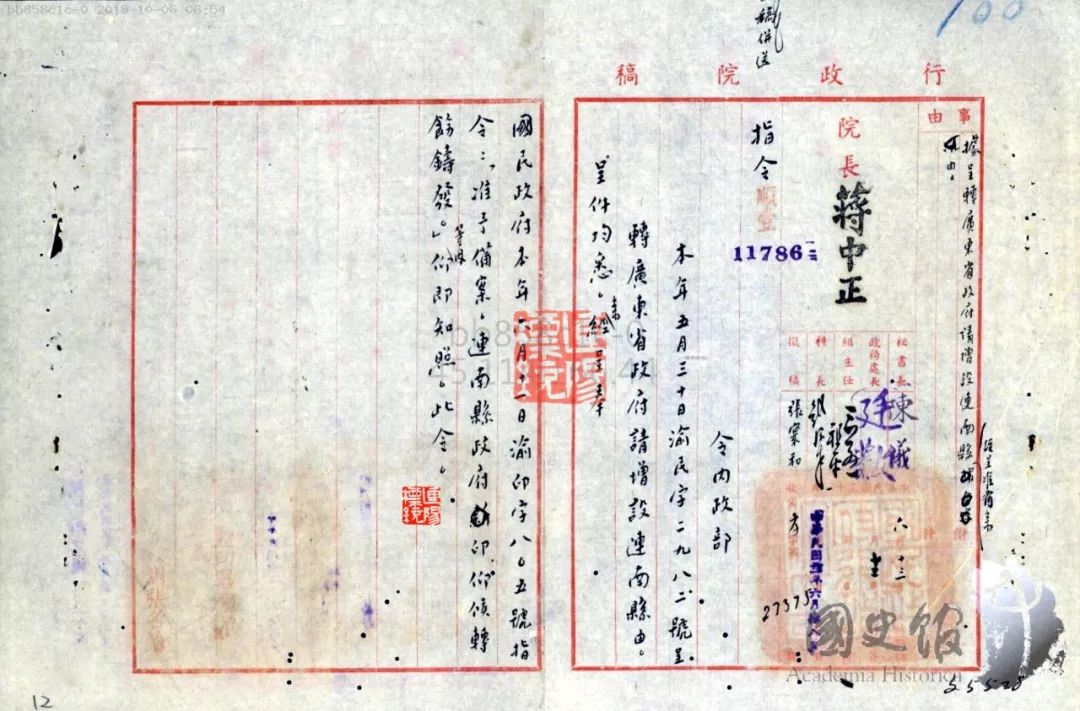 bb858616-0 2019-10-06 06:54
稿併送
行政院稿
事由
據呈轉廣東省政府請增設連南縣
經呈准備案
院長
蔣中正
秘書長
陳儀
政務處長
組主任
科長
擬稿
張寀和
六 十三
指令
順壹
11786
令內政部
本年五月三十日渝民字二九八二號呈
轉廣東省政府請增設連南縣由。
呈件均悉。經呈奉
國民政府本年六月十一日渝印字八〇五號指
令:「准予備案。連南縣政府印仰候轉
飭鑄發。」等因仰即知照。此令。
27375
55528
國史館
Academia Historica
12